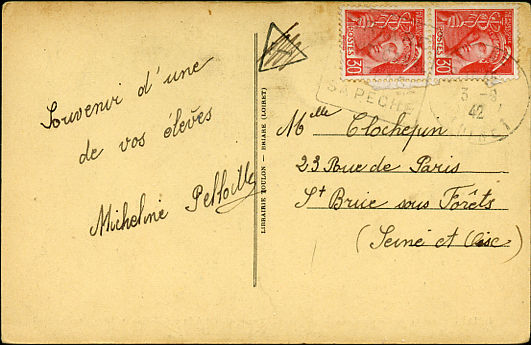 Souvenir d'une
de vos élèves
Micheline
LIBRAIRIE TOULON — BRIARE (LOIRET)
POSTES
30
POSTES
30
SA PÊCHE
3 -8
42
Melle Clochepin
23 Rue de Paris
St Brice sous Forêts
(Seine et Oise)